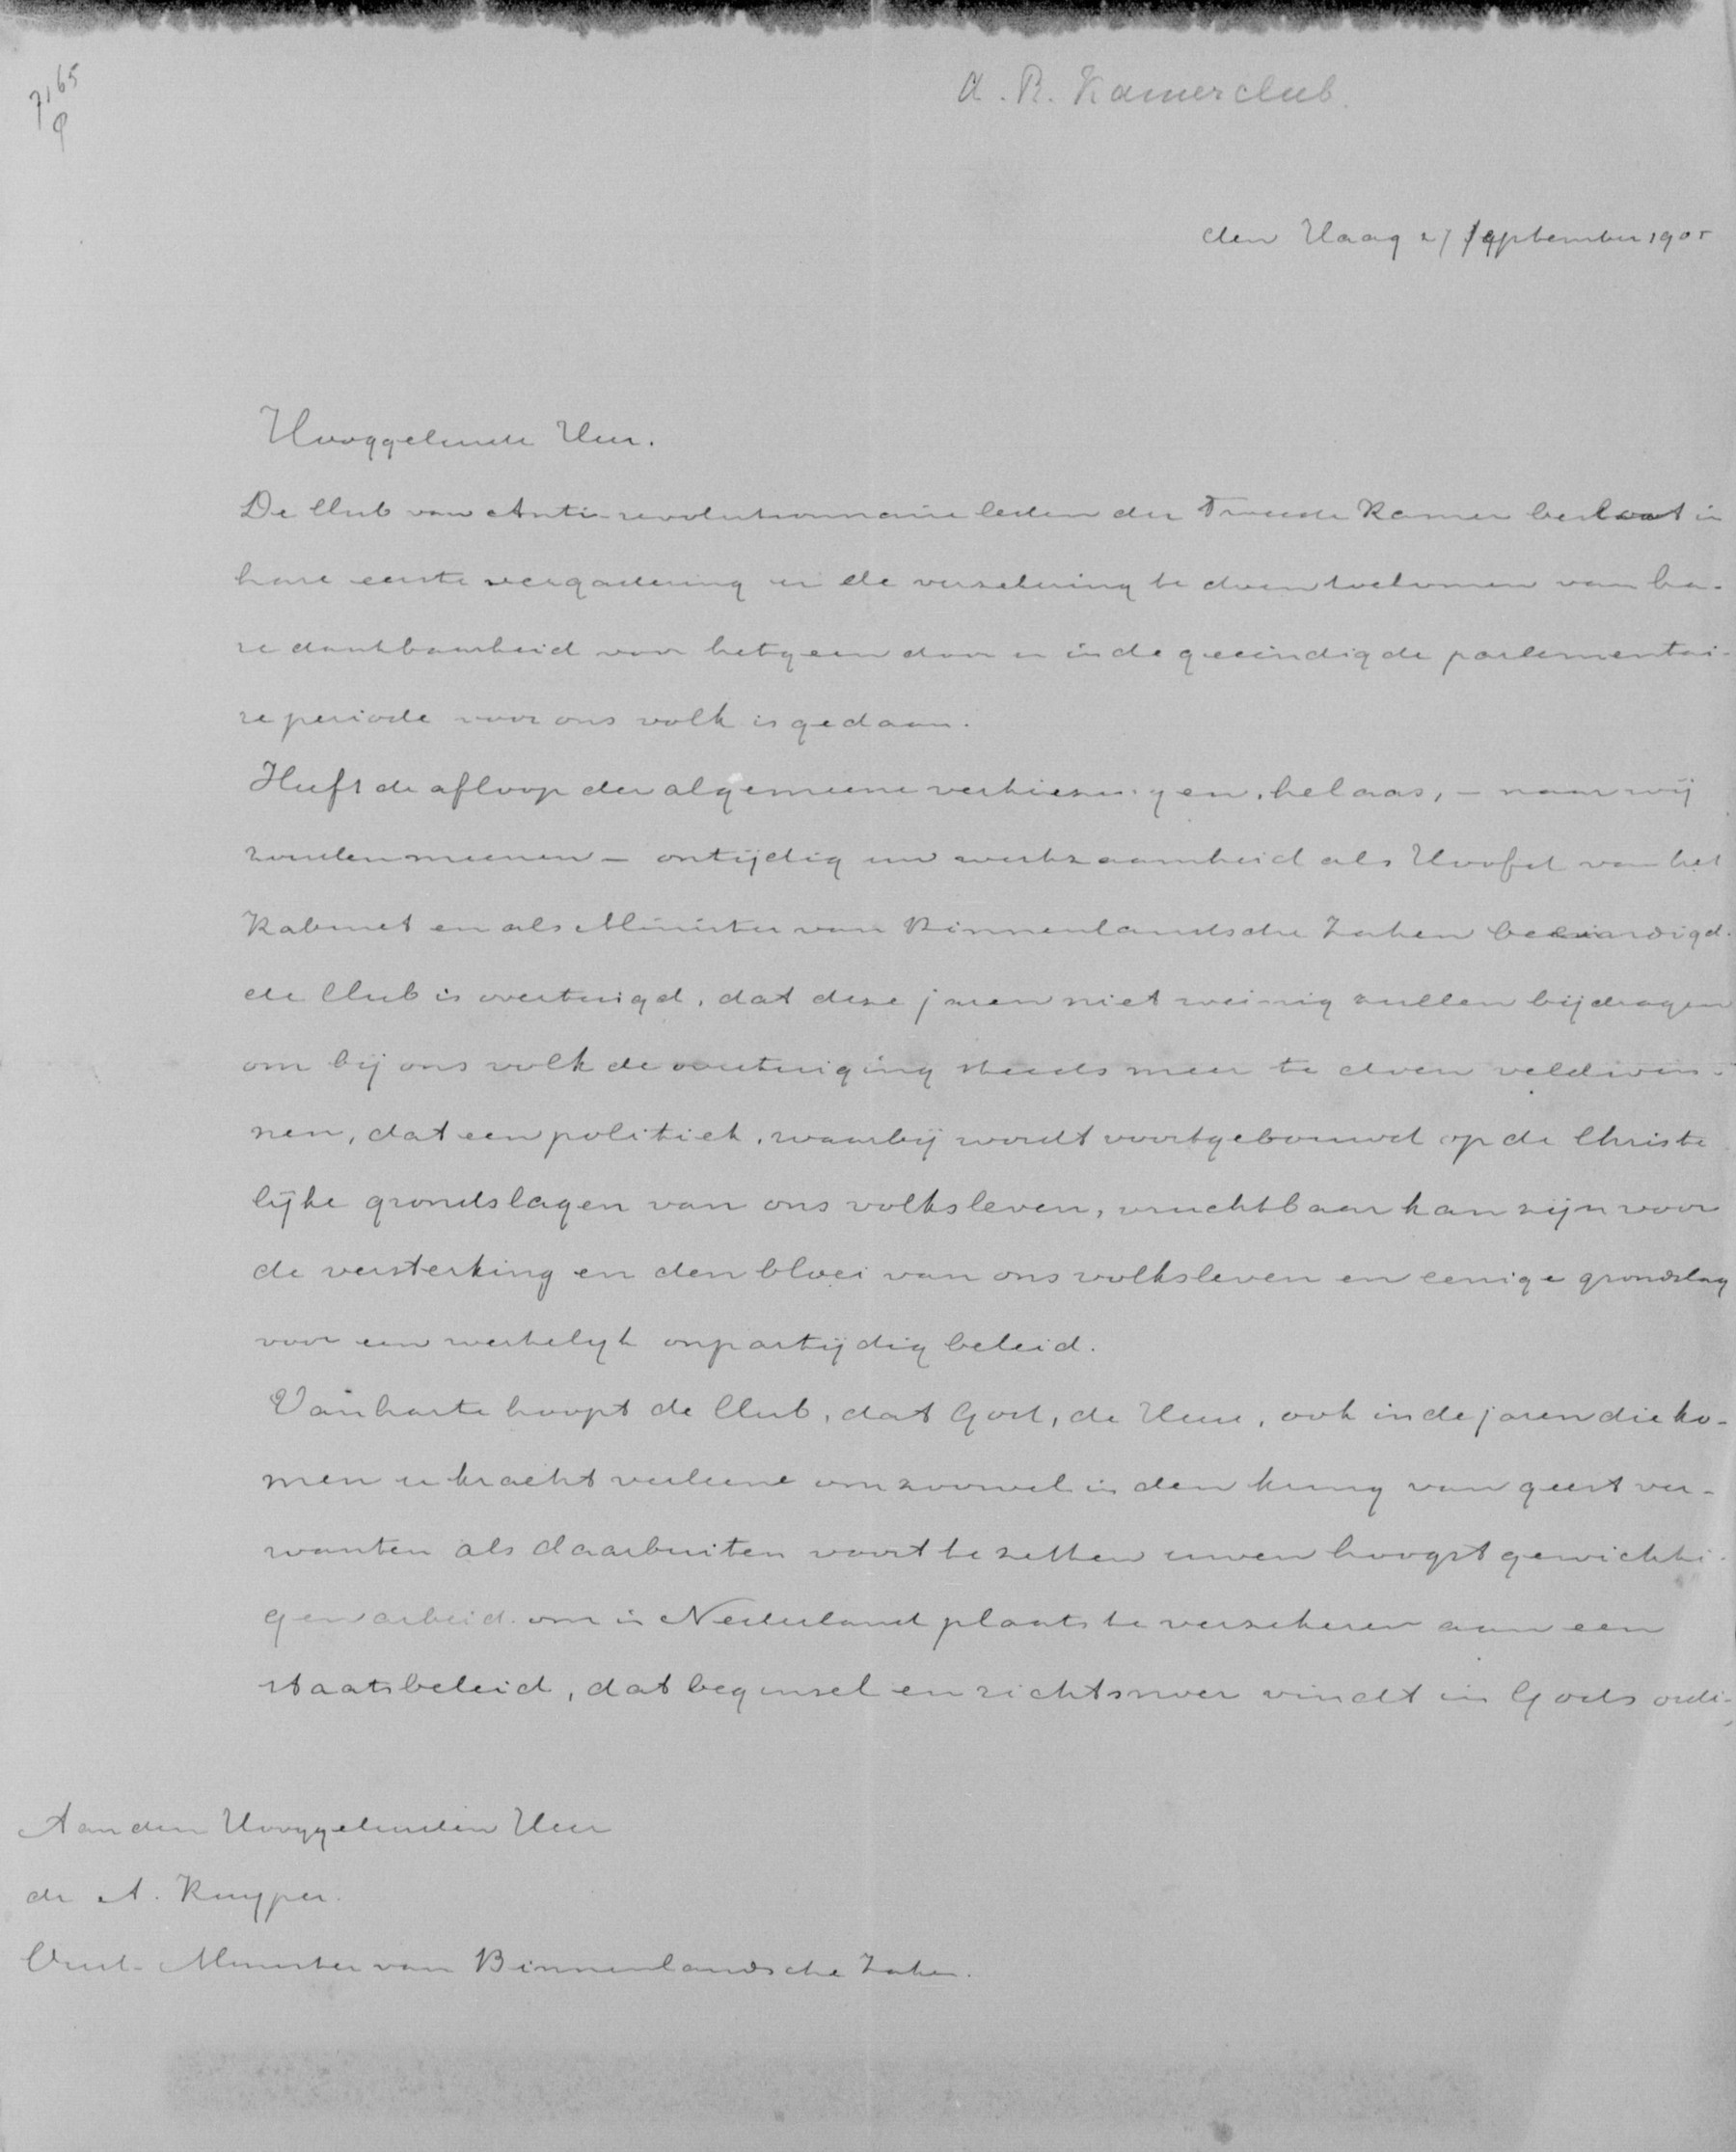 7165
A. R. Kamerclub.
den Haag 27 September 1905
Hooggeleerde Heer.
De Club van Anti-revolutionnaire leden der Tweede Kamer besloot in
hare eerste vergadering u de verzekering te doen toekomen van ha-
re dankbaarheid voor hetgeen door u in de geeindigde parlementai-
re periode voor ons volk is gedaan.
Heeft de afloop der algemeene verkiezingen, helaas, - naar wij
zouden meenen - ontijdig uw werkzaamheid als Hoofd van het
Kabinet en als Minister van Binnenlandsche Zaken beeindigd.
de Club is overtuigd, dat deze jaren niet weinig zullen bijdragen
om bij ons volk de overtuiging steeds meer te doen veldwin-
nen, dat een politiek, waarbij wordt voortgebouwd op de Christe
lijke grondslagen van ons volksleven, vruchtbaar kan zijn voor
de versterking en den bloei van ons volksleven en eenige grondslag
voor een werkelijk onpartijdig beleid.
Van harte hoopt de Club, dat God, de Heere, ook in de jaren die ko-
men u kracht verleene om zoowel in den kring van geestver-
wanten als daarbuiten voort te zetten uwen hoogst gewichti-
gen arbeid om in Nederland plaats te verzekeren aan een
staatsbeleid, dat beginsel en richtsnoer vindt in Gods ordi-
Aan den Hooggeleerden Heer
dr A. Kuyper.
Oud-Minister van Binnenlandsche Zaken.